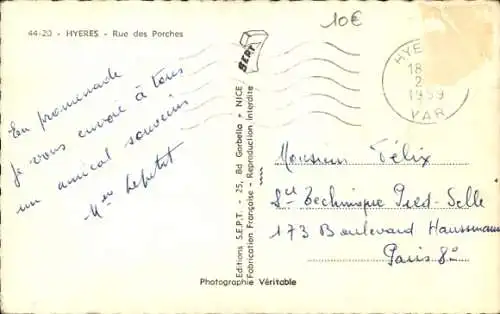 44-20 - HYERES - Rue des Porches
10€
BERT
HYE
18
2
1959
VAR
En promenade
je vous envoie à tous
un amical souvenir
Editions S.E.P.T. - 25, Bd Gorbella - NICE
Fabrication Française - Reproduction interdite
Monsieur Félix
Sté Technique Pied-Selle
173 Boulevard Haussmann
Paris 8e
Photographie Véritable